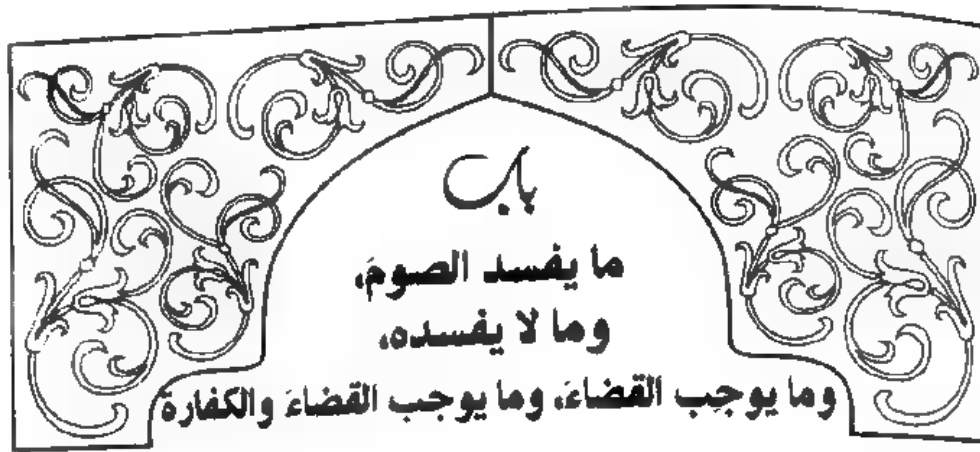 باب
ما يفسد الصومَ،
وما لا يفسده،
وما يوجِب القضاءَ، وما يوجب القضاءَ والكفارة